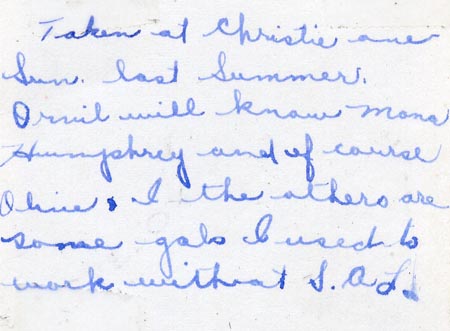 Taken at Christie one
Sun. last Summer.
Orvil will know Mona
Humphrey and of course
Olive, & the others are
some gals I used to
work with at S.A.L.